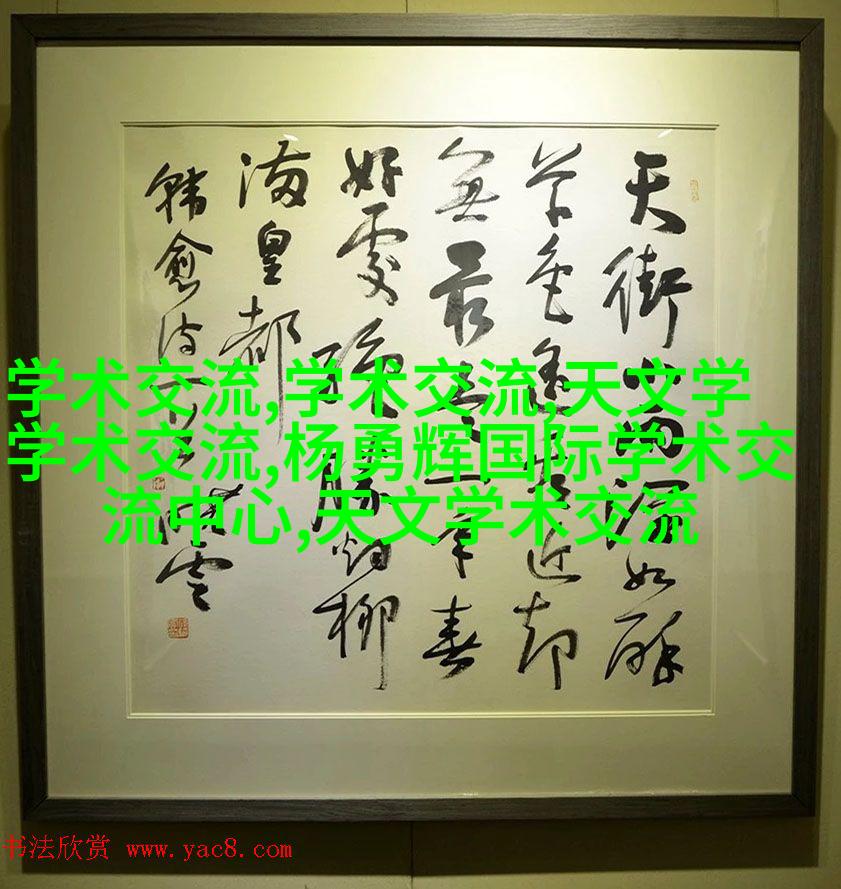 天街小雨潤如酥
草色遥看近却
無最是一年春
好處絶勝烟柳
满皇都
韩愈诗
学术交流,学术交流,天文学
学术交流,杨勇辉国际学术交
流中心,天文学术交流
书法欣赏 www.yac8.com